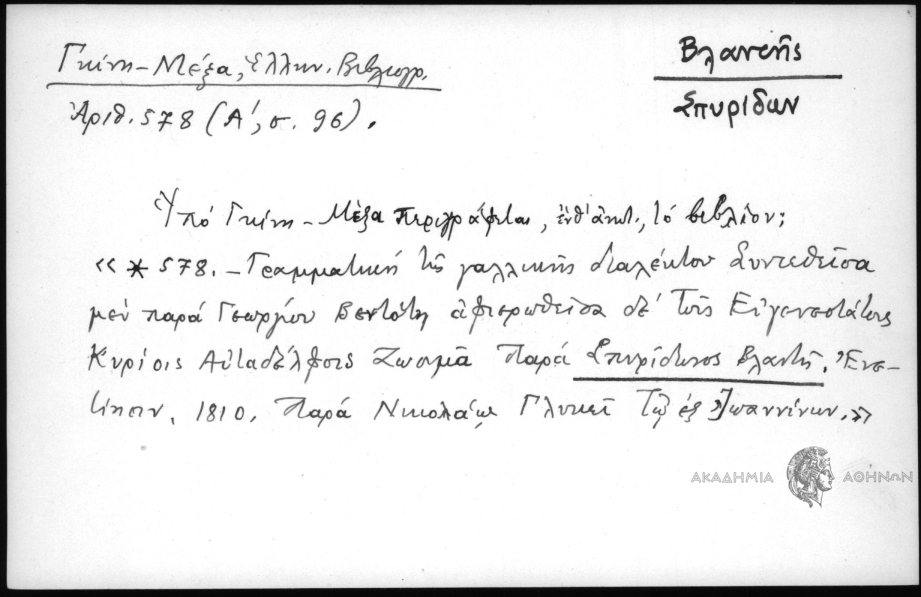 Γκίνη – Μέξα, Ἑλλην. Βιβλιογρ.
Ἀριθ. 578 (Α΄, σ. 96).
Βλαντῆς
Σπυρίδων
Ὑπό Γκίνη – Μέξα περιγράφεται, ἔνθ' ἀνωτ., τό βιβλίον;
«* 578. – Γραμματική τῆς γαλλικῆς διαλέκτου Συντεθεῖσα
μέν παρά Γεωργίου Βεντότη ἀφιερωθεῖσα δέ Τοῖς Εὐγενεστάτοις
Κυρίοις Αὐταδέλφοις Ζωσιμᾶ Παρά Σπυρίδωνος Βλαντῆ. Ἐνε-
τίησιν, 1810. Παρά Νικολάῳ Γλυκεῖ Τῷ ἐξ Ἰωαννίνων.»
ΑΚΑΔΗΜΙΑ ΑΘΗΝΩΝ